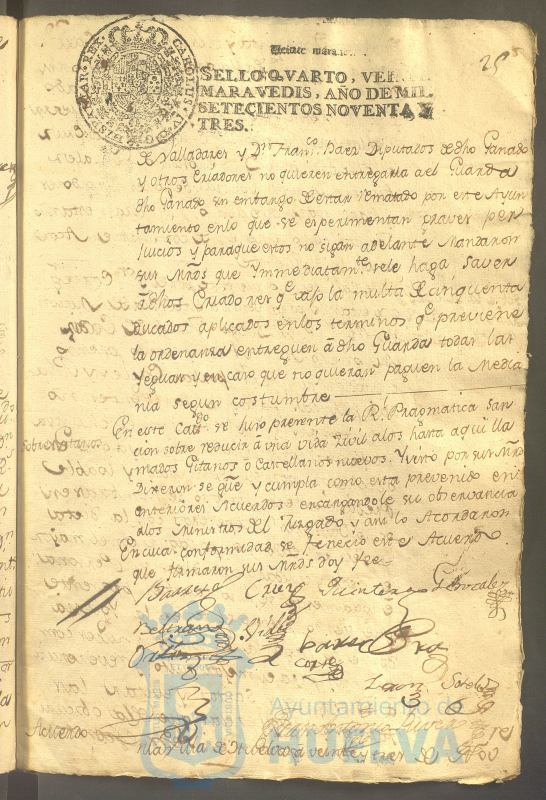 25
SELLO QVARTO, VEINTE
MARAVEDIS, AÑO DE MIL
SETECIENTOS NOVENTA Y
TRES.
de Valladares y Dn. Franco. Baez Diputados de dho Ganado
y otros Criadores no quieren entregarla a el Guarda
dho Ganado sin embargo de estar rematado por este Ayun
tamiento en lo que se experimentan graves per
juicios y para que estos no sigan adelante Mandaron
sus Mrds que Ymmediatamte. se le haga saver
a dhos Criadores qe. vajo la multa de cinquenta
Ducados aplicados en los terminos qe. previene
la ordenanza entreguen a dho Guarda todas las
Yeguas y en caso que no quieran paguen la Media
nia segun costumbre
Sobre Gitanos
En este Cavdo. se hizo presente la Rl. Pragmatica San
cion sobre reducir a una vida civil a los hasta aqui lla
mados Gitanos o Castellanos nuevos. Y visto por sus Mrds
Dixeron se gue. y cumpla como esta prevenido en
anteriores Acuerdos encargandole su observancia
a los Ministros del Juzgado y asi lo Acordaron
En cuia conformidad se fenecio este Acuerdo
que firmaron sus Mrds doy fee
Barrera Cruz Quintero Gonzalez
Beltran
Leon Sotelo
Acuerdo
en la villa de Huelva a veinte y tres de
Ayuntamiento de
HUELVA